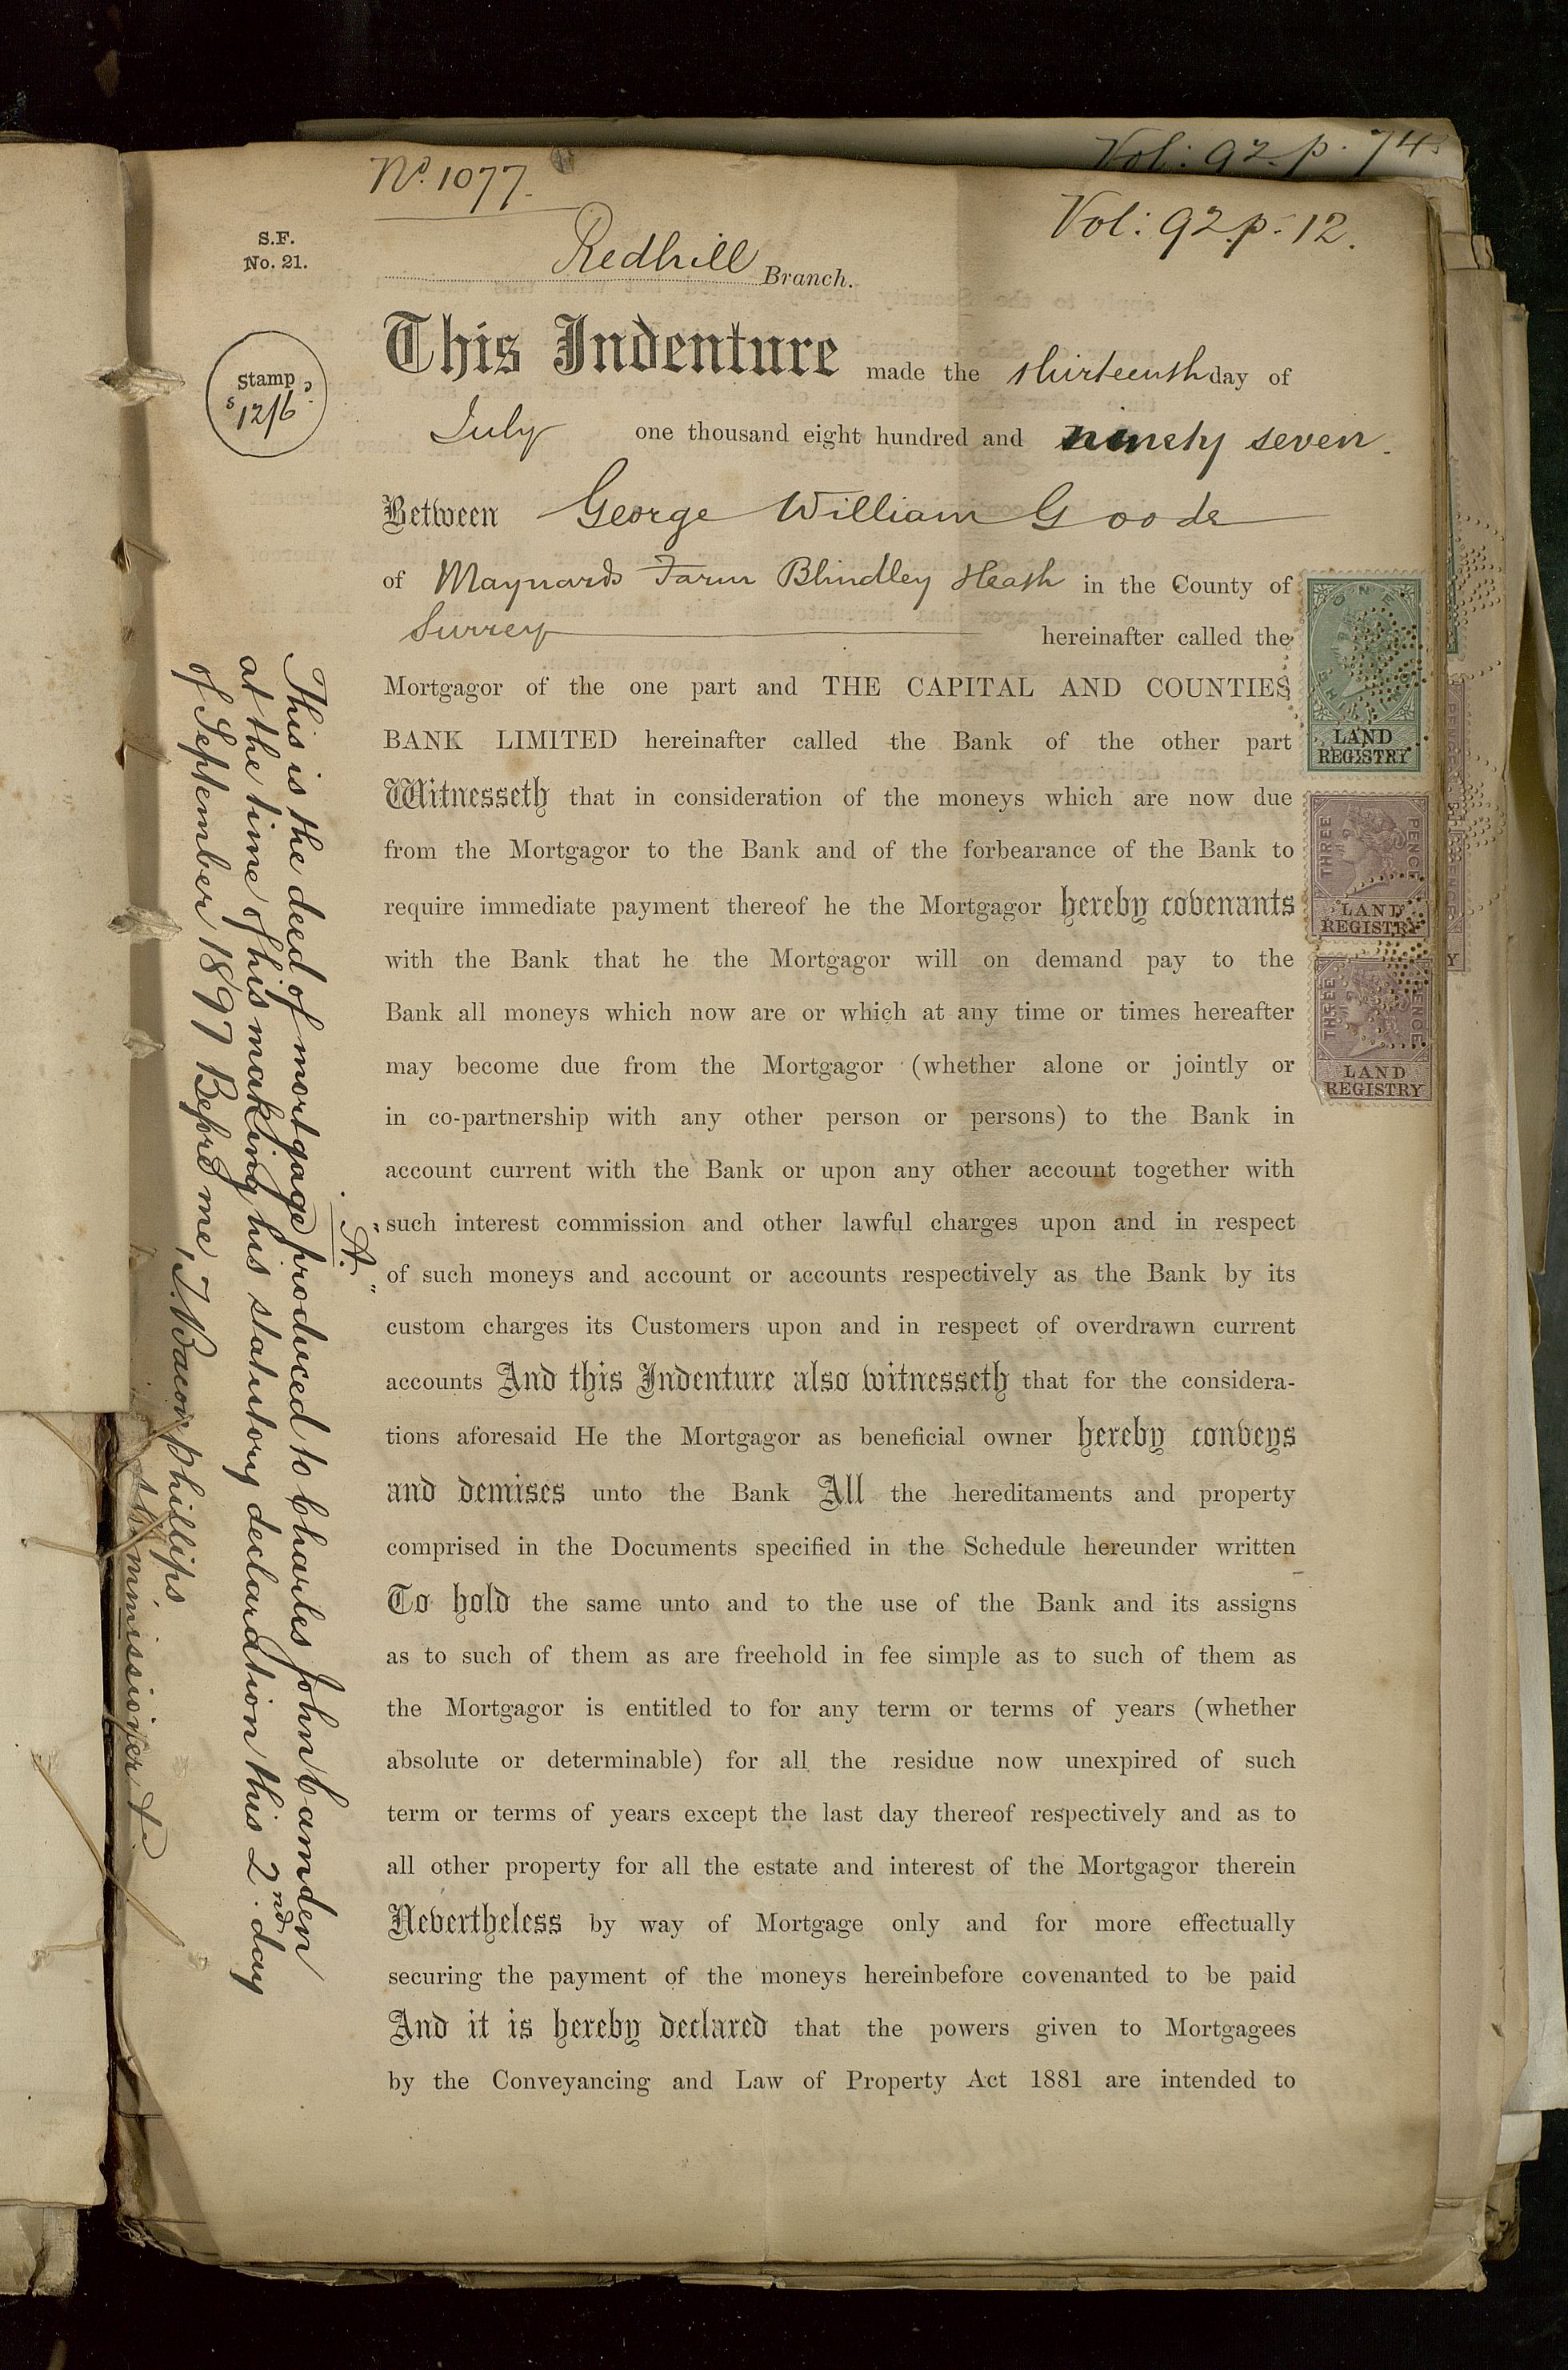 Vol: 92. p. 74.
No. 1077.
Vol: 92. p. 12.
S.F.
No. 21.
Redhill Branch.
Stamp
s 12/6
This Indenture made the thirteenth day of
July one thousand eight hundred and ninety seven.
Between George William Goode
of Maynards Farm Blindley Heath in the County of
Surrey hereinafter called the
Mortgagor of the one part and THE CAPITAL AND COUNTIES
BANK LIMITED hereinafter called the Bank of the other part
Witnesseth that in consideration of the moneys which are now due
from the Mortgagor to the Bank and of the forbearance of the Bank to
require immediate payment thereof he the Mortgagor hereby covenants
with the Bank that he the Mortgagor will on demand pay to the
Bank all moneys which now are or which at any time or times hereafter
may become due from the Mortgagor (whether alone or jointly or
in co-partnership with any other person or persons) to the Bank in
account current with the Bank or upon any other account together with
such interest commission and other lawful charges upon and in respect
of such moneys and account or accounts respectively as the Bank by its
custom charges its Customers upon and in respect of overdrawn current
accounts And this Indenture also witnesseth that for the considera-
tions aforesaid He the Mortgagor as beneficial owner hereby conveys
and demises unto the Bank All the hereditaments and property
comprised in the Documents specified in the Schedule hereunder written
To hold the same unto and to the use of the Bank and its assigns
as to such of them as are freehold in fee simple as to such of them as
the Mortgagor is entitled to for any term or terms of years (whether
absolute or determinable) for all the residue now unexpired of such
term or terms of years except the last day thereof respectively and as to
all other property for all the estate and interest of the Mortgagor therein
Nevertheless by way of Mortgage only and for more effectually
securing the payment of the moneys hereinbefore covenanted to be paid
And it is hereby declared that the powers given to Mortgagees
by the Conveyancing and Law of Property Act 1881 are intended to
"A."
This is the deed of mortgage produced to Charles John Camden
at the time of his making his statutory declaration this 2nd. day
of September 1897 Before me, J. Bacon phillips
ONE SHILLING
LAND
REGISTRY
THREE PENCE
LAND
REGISTRY
THREE PENCE
LAND
REGISTRY